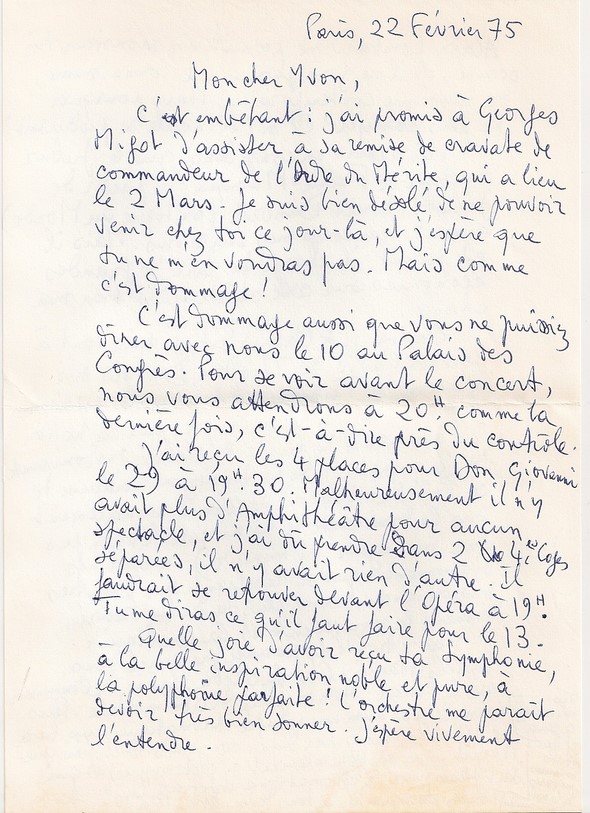 Paris, 22 Février 75
Mon cher Yvon,
C'est embêtant : j'ai promis à Georges
Migot d'assister à sa remise de cravate de
commandeur de l'Ordre du Mérite, qui a lieu
le 2 Mars. Je suis bien désolé de ne pouvoir
venir chez toi ce jour-là, et j'espère que
tu ne m'en voudras pas. Mais comme
c'est dommage !
C'est dommage aussi que vous ne puissiez
dîner avec nous le 10 au Palais des
Congrès. Pour se voir avant le concert,
nous vous attendrons à 20H, comme la
dernière fois, c'est-à-dire près du contrôle.
J'ai reçu les 4 places pour Don Giovanni
le 29 à 19H.30. Malheureusement il n'y
avait plus d'Amphithéâtre pour aucun
spectacle, et j'ai dû prendre dans 2 4es Loges
séparées, il n'y avait rien d'autre. Il
faudrait se retrouver devant l'Opéra à 19H.
Tu me diras ce qu'il faut faire pour le 13.
Quelle joie d'avoir reçu ta Symphonie,
à la belle inspiration noble et pure, à
la polyphonie parfaite ! L'orchestre me paraît
devoir très bien sonner. J'espère vivement
l'entendre.